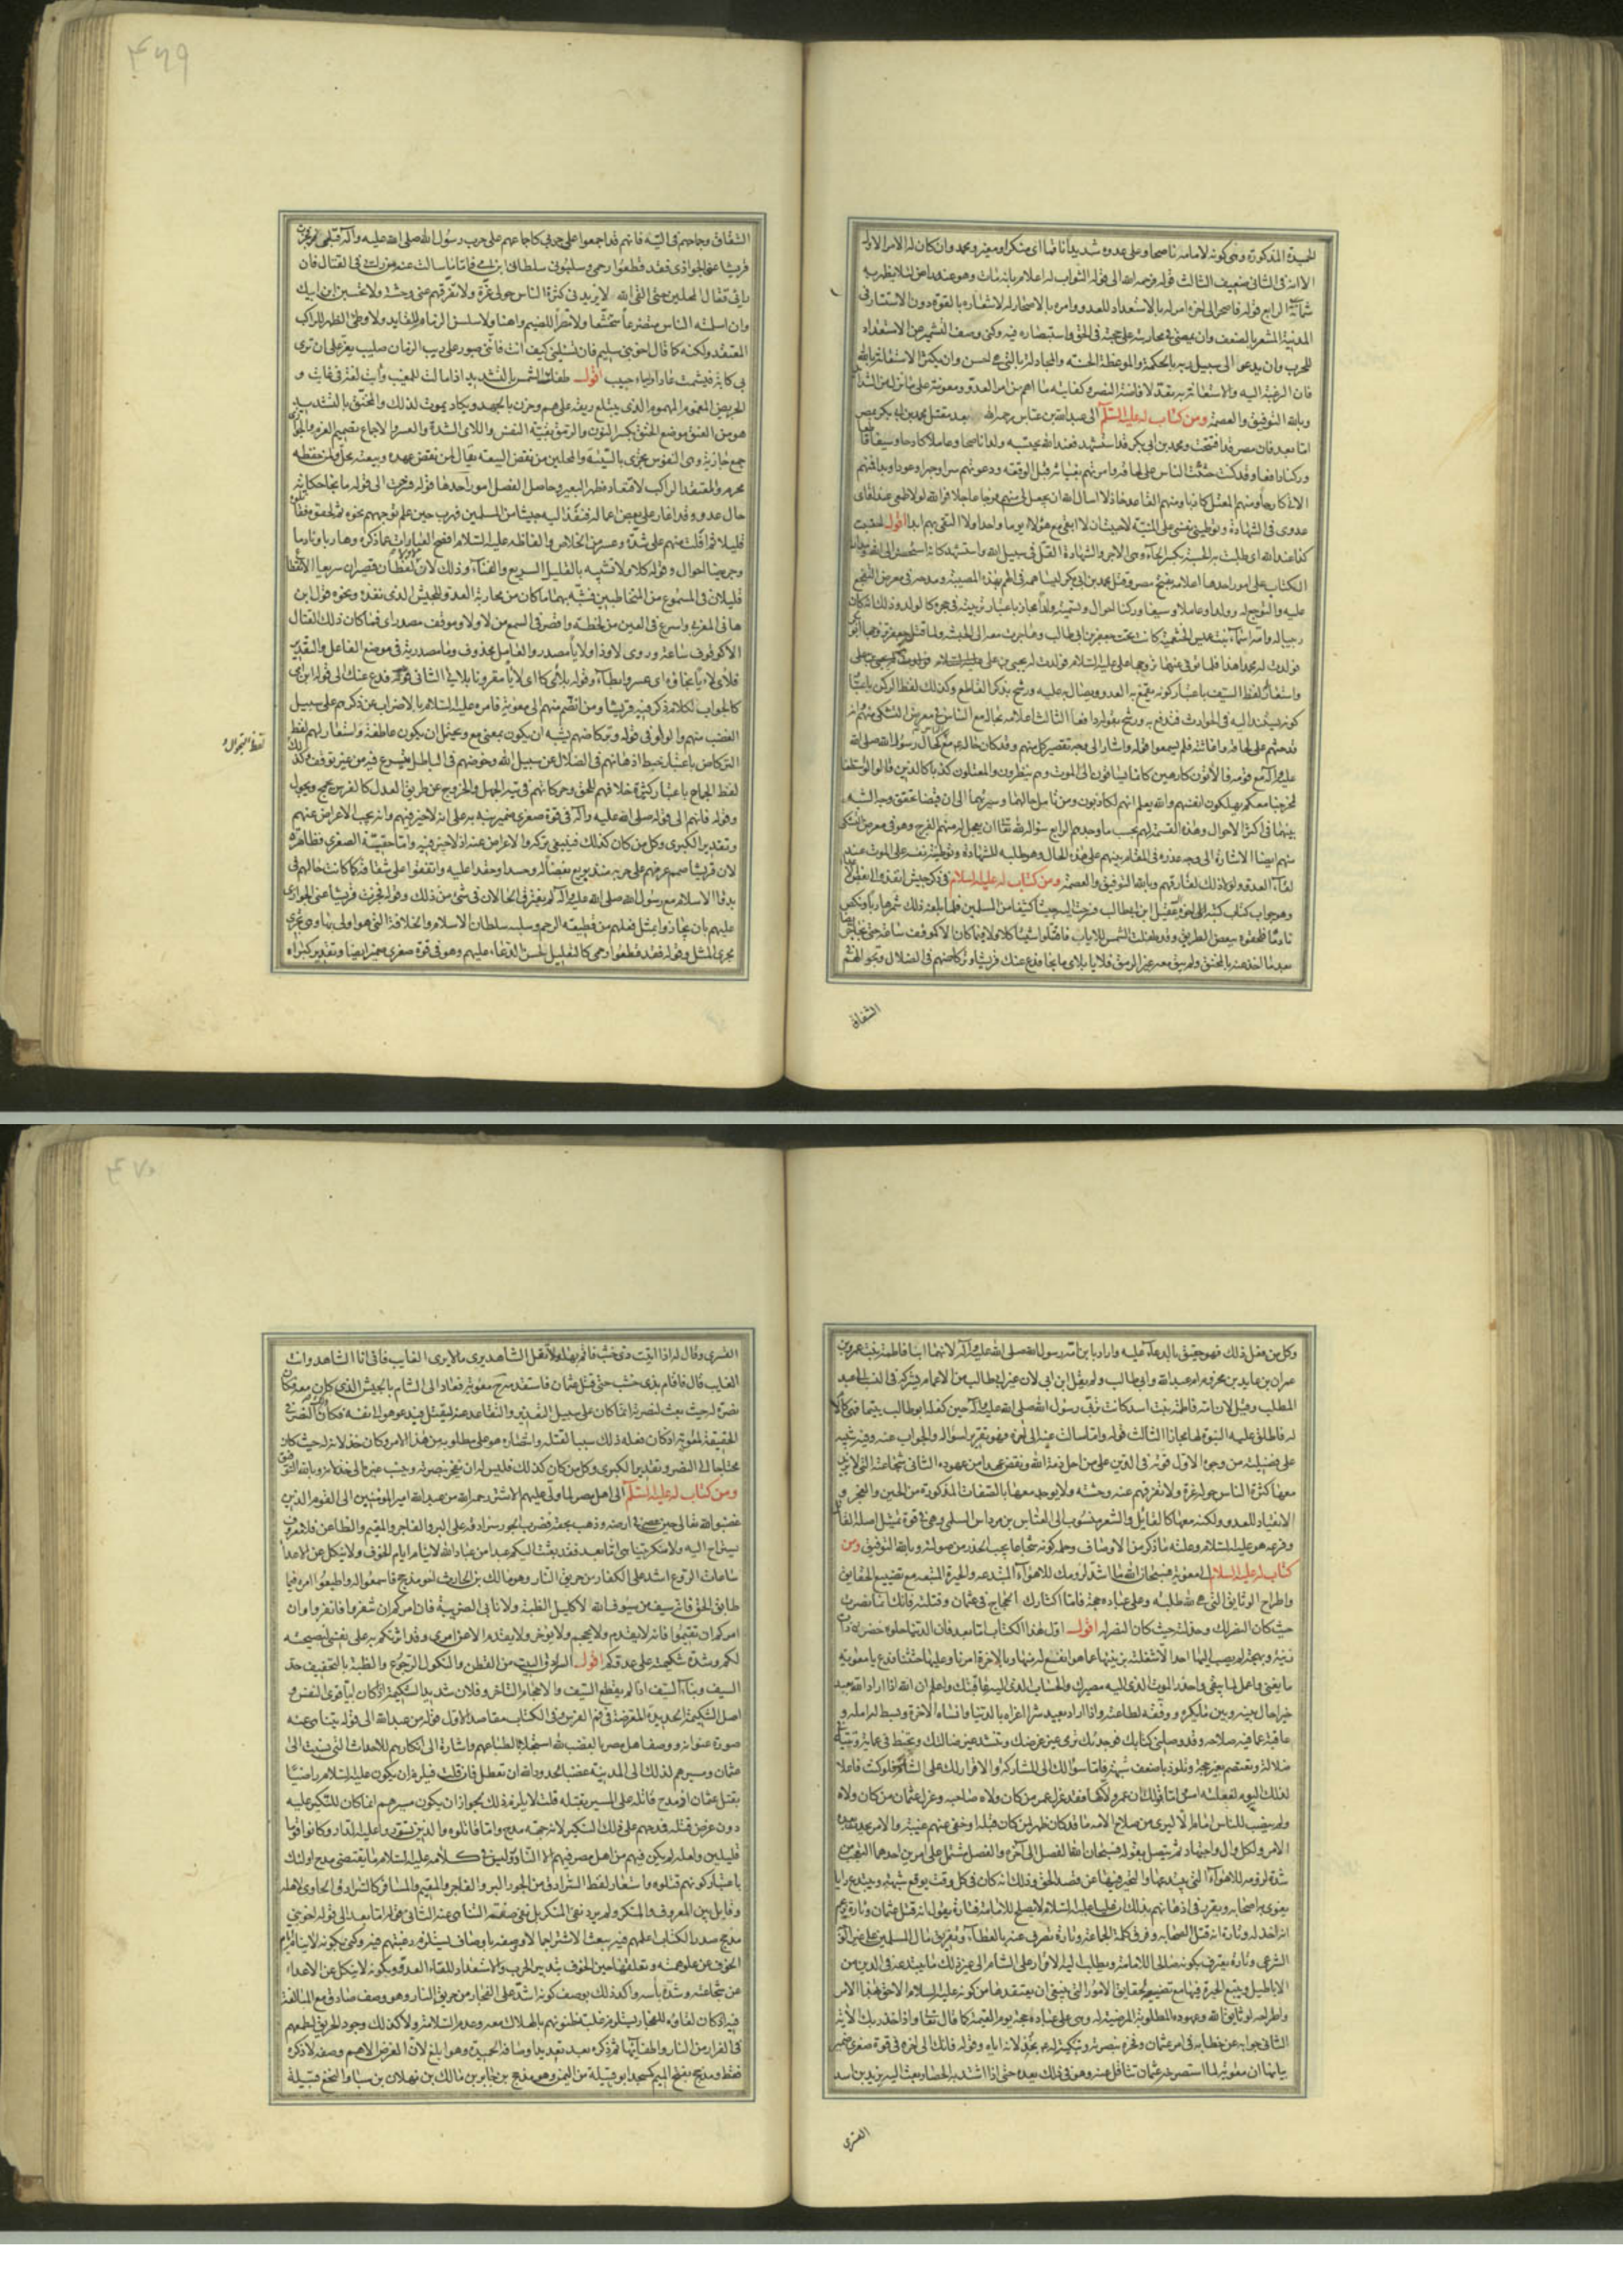 ۴۶۹
الحميدة المذكورة وهى كونه لامامه ناصحا وعلى عدوه شديدا ناقما اى منكرا ومغيرو محمد وان كان له الامر الاول
الا انه فى الثانى ضعيف الثالث قوله فرحمه الله الى قوله الثواب له اعلام بانه مات وهو عنه راض لئلا يظن به
شماتة الرابع قوله فاصحر الى اخره امر له بالاستعداد للعدو وامره بالاصحار له لاشعاره بالقوة دون الاستتار فى
المدينة المشعر بالضعف وان يمضى فى محاربته على حجته فى الحق واستبصاره فيه وكنى وصف التشمير عن الاستعداد
للحرب وان يدعوا الى سبيل ربه بالحكمة والموعظة الحسنة والمجادلة بالتى هى احسن وان يكثر الاستعانة بالله
فان الرغبة اليه والاستعانة به معدة لافاضة النصر وكفايته ما اهم من امر العدو ومعونته على ما نزل من الشدائد
وبالله التوفيق والعصمة ومن كتاب له عليه السلم الى عبد الله بن عباس رحمه الله بعد مقتل محمد بن ابى بكر بمصر
اما بعد فان مصر قد افتتحت ومحمد بن ابى بكر قد استشهد فعند الله نحتسبه ولدا ناصحا وعاملا كادحا وسيفا قاطعا
وركنا دافعا وقد كنت حثثت الناس على لحاقه وامرتهم بغياثه قبل الوقعة ودعوتهم سرا وجهرا وعودا وبدا فمنهم
الاتى كارها ومنهم المعتل كاذبا ومنهم القاعد خاذلا اسال الله ان يجعل لى منهم فرجا عاجلا فو الله لولا طمعى عند لقاى
عدوى فى الشهادة وتوطينى نفسى على المنية لاحببت ان لا ابقى مع هؤلاء يوما واحدا ولا التقى بهم ابدا اقول احتسبت
كذا عند الله اى طلبت به الحسبة بكسر الحاء وهى الاجر والشهادة القتل فى سبيل الله واستشهد
الكتاب على امور احدها اعلامه بفتح مصر وقتل محمد بن ابى بكر ليساهمه فى الهم بهذه المصيبة ومدحه فى معرض التفجع
عليه والتوجع له وولدا وعاملا وسيفا وركنا احوال وتسميته ولدا مجاز باعتبار تربيته فى حجره كالولد وذلك انه كان
ربيبا له وامه اسماء بنت عميس الخثعمية كانت تحت جعفر بن ابى طالب وهاجرت معه الى الحبشة ولما قتل جعفر تزوجها ابو بكر
فولدت له محمدا هذا فلما توفى عنها تزوجها على عليه السلام فولدت له يحيى بن على
واستعار لفظ السيف باعتبار كونه يقمع به العدو ويصال به عليه ورشح بذكر القاطع وكذلك لفظ الركن باعتبار
كونه يستند اليه فى الحوادث فتدفع به ورشح بقوله دافعا الثالث اعلامه بحاله مع الناس فى معرض التشكى منهم انه
قد حثهم على لحاقه واغاثته فلم يسمعوا قوله واشار الى وجه تقصير كل منهم وقد كان حاله مع الناس كحال رسول الله صلى الله
عليه وآله مع قومه فالآتون كارهين كانما يساقون الى الموت وهم ينظرون والمعتلون كذبا كالذين قالوا لو استطعنا
لخرجنا معكم يهلكون انفسهم والله يعلم انهم لكاذبون ومن تامل حالهما وسيرتهما الى ان قبضا تحقق وجه الشبه
بينهما فى اكثر الاحوال وهذه القسمة لهم بحسب ما وجدهم الرابع سؤاله لله تعالى ان يعجل له منهم الفرج وهو فى معرض التشكى
منهم ايضا الاشارة الى وجه عذره فى المقام بينهم على هذه الحال وهو طلبه للشهادة وتوطينه نفسه على الموت عند
لقاء العدو ولولا ذلك لفارقهم وبالله التوفيق والعصمة ومن كتاب له عليه السلام فى ذكر جيش انفذه الى بعض الاعداء
وهو جواب كتاب كتبه الى اخوه عقيل ابن ابى طالب فسرحت اليه جيشا كثيفا من المسلمين فلما بلغه ذلك شمر هاربا ونكص
نادما فلحقوه ببعض الطريق وقد طفلت الشمس للاياب فاقتتلوا شيئا كلا ولا فما كان الا كموقف ساعة حتى نجا جريضا
بعد ما اخذ منه بالمخنق ولم يبق معه غير الرمق فلايا بلاى ما نجا فدع عنك قريشا وتركاضهم فى الضلال وتجوالهم
الشقاق
الشقاق وجماحهم فى التيه فانهم قد اجمعوا على حربى كاجماعهم على حرب رسول الله صلى الله عليه وآله قبلى فجزت
قريشا عنى الجوازى فقد قطعوا رحمى وسلبونى سلطان ابن امى فاما ما سالت عنه من رأيى فى القتال فان
رايى قتال المحلين حتى القى الله لا يزيدنى كثرة الناس حولى عزة ولا تفرقهم عنى وحشة ولا تحسبن ابن ابيك
وان اسلمه الناس متضرعا متخشعا ولا مقرا للضيم واهنا ولا سلس الزمام للقايد ولا وطئ الظهر للراكب
المتقعد ولكنه كما قال اخو بنى سليم فان تسئلينى كيف انت فاننى صبور على ريب الزمان صليب يعز على ان ترى
بى كابة فيشمت عاد او يساء حبيب اقول طفلت الشمس بالتشديد اذا مالت للمغيب وآبت لغة فى غابت و
الجريض المغموم المهموم الذى يبتلع ريقه على هم وحزن بالجهد ويكاد يموت لذلك والمخنق بالتشديد
هو من العنق موضع الخنق بكسر النون والرمق بقية النفس واللاى الشدة والعسر والاجماع تصميم العزم والجوازى
جمع جازية وهى النفوس تجزى بالسيئة والمحلين من نقض البيعة يقال لمن نقض عهده وبيعته محل ولمن حفظه
محرم والمتقعد الراكب لاقتعاده ظهر البعير وحاصل الفصل امور احدها قوله فسرحت الى قوله ما نجا حكاية
حال عدو وقد اغار على بعض اعماله فنفذ اليه جيشا من المسلمين فهرب حين علم توجههم نحوه ثم لحقوه فقاتلوه
قليلا ثم افلت منهم على شدة وعسر من الخلاص والفاظه عليه السلام افصح العبارات عما ذكره وهاربا ونادما
وجريضا احوال وقوله كلا ولا تشبيه بالقليل السريع والفناء وذلك لان لفظان قصيران سريعا الانقطاع
قليلان فى المسموع من المتخاطبين فشبه بهما ما كان من محاربة العدو للجيش الذى نفذه ونحوه قول ابن
هانى المغربى واسرع فى العين من لحظة واقصر فى السمع من لا ولا وموقف مصدر اى فما كان ذلك القتال
الا كوقوف ساعة وروى لا وذا ولايا مصدر والعامل محذوف وما مصدرية فى موضع الفاعل والتقدير
فلاى لايا نجاؤه اى عسر وابطاء وقوله بلاى كا اى لايا مقرونا بلاى الثانى قوله فدع عنك الى قوله ابن امى
كالجواب لكلام ذكر فيه قريشا ومن انضم منهم الى معوية فامره عليه السلام بالاضراب عن ذكرهم على سبيل
الغضب منهم والواو فى قوله وتركاضهم يشبه ان يكون بمعنى مع ويحتمل ان يكون عاطفة واستعار لهم لفظ
التركاض باعتبار خبط اذهانهم فى الضلال عن سبيل الله وخوضهم فى الباطل بتسرع فيه من غير توقف وكذلك
لفظ الجماح باعتبار كثرة خلافهم للحق وحركاتهم فى تيه الجهل والخروج عن طريق العدل كالفرس يجمح ويجول
وقوله فانهم الى قوله صلى الله عليه وآله فى قوة صغرى ضمير نبه به على انه لا خير فيهم وانه يجب الاعراض عنهم
وتقدير الكبرى وكل من كان كذلك فينبغى تركه والاعراض عنه اذ لا خير فيه واما حقيقة الصغرى فظاهرة
لان قريشا صمم عزمهم على حربه منذ بويع بغضا له وحسدا وحقدا عليه واتفقوا على شقاقه كما كانت حالهم فى
بدو الاسلام مع رسول الله صلى الله عليه وآله لم يفترق الحالان فى شئ من ذلك وقوله فجزت قريشا عنى الجوازى
عليهم بان يجازوا بمثل فعلهم من قطيعة الرحم وسلبه سلطان الاسلام والخلافة التى هو اولى بها وهى تجرى
مجرى المثل وقوله فقد قطعوا رحمى كالتعليل لحسن الدعاء عليهم وهو فى قوة صغرى ضمير ايضا وتقدير كبراه
۴۷۰
وكل من فعل ذلك فهو حقيق بالدعاء عليه واراد بابن امه رسول الله صلى الله عليه وآله لانهما ابنا فاطمة بنت عمرو بن
عمران بن عايد بن مخزوم ام عبد الله وابى طالب ولم يقل ابن ابى لان غير ابى طالب من الاعمام يشركه فى النسب الى عبد
المطلب وقيل لان امه فاطمة بنت اسد كانت تربى رسول الله صلى الله عليه وآله حين كفله ابو طالب يتيما فهى كالام
له فاطلق عليه البنوة لها مجازا الثالث قوله واما سالت عنه الى اخره فهو تقرير لسؤاله والجواب عنه وفيه تنبيه
على فضيلته من وجوه الاول قوته فى الدين على من احل ذمة الله ونقض عهدا من عهوده الثانى شجاعته التى لا يزيد
معها كثرة الناس حوله عزة ولا تفرقهم عنه وحشة ولا يوجد معها بالصفات المذكورة من الجبن والعجز و
الانقياد للعدو ولكنه معها كالقايل والشعر منسوب الى العباس بن مرداس السلمى وهى فى قوة تمثيل اصله القايل
وفرعه هو عليه السلام وعلته ما ذكر من الاوصاف وحكمه كونه شجاعا يجب الحذر من صولته وبالله التوفيق ومن
كتاب له عليه السلام الى معوية فسبحان الله ما اشد لزومك للاهواء المبتدعة والحيرة المتبعة مع تضييع الحقايق
واطراح الوثايق التى هى لله طلبة وعلى عباده حجة فاما اكثارك الحجاج فى عثمان وقتلته فانك انما نصرت عثمان
حيث كان النصر لك وخذلته حيث كان النصر له اقول اول هذا الكتاب اما بعد فان الدنيا حلوة خضرة ذات
زينة وبهجة لم يصب اليها احد الا شغلته بزينتها عما هو انفع له منها وبالاخرة امرنا وعليها حثثنا فدع يا معوية
ما يفنى واعمل لما يبقى واحذر الموت الذى اليه مصيرك والحساب الذى اليه عاقبتك واعلم ان الله اذا اراد بعبد
خيرا حال بينه وبين ما يكره ووفقه لطاعته واذا اراد بعبد شرا اغراه بالدنيا وانساه الاخرة وبسط له امله و
عاقه عما فيه صلاحه وقد وصلنى كتابك فوجدتك ترمى غير غرضك وتنشد غير ضالتك وتخبط فى عماية وتتيه فى
ضلالة وتعتصم بغير حجة وتلوذ باضعف شبهة فاما سؤالك الى المشاركة والاقرار لك على الشام فلو كنت فاعلا
لذلك اليوم لفعلته امس واما قولك ان عمر ولاكها فقد عزل عمر من كان ولاه صاحبه وعزل عثمان من كان ولاه عمر
ولم ينصب للناس امام الا ليرى من صلاح الامة ما قد كان ظهر لمن كان قبله او خفى عنهم عيبه والامر يحدث بعده
الامر ولكل وال راى واجتهاد ثم يتصل بقوله فسبحان الله الفصل الى آخره والفصل مشتمل على امرين احدهما التعجب من
شدة لزومه للاهواء التى يبتدعها والتحير فيها عن قصد الحق وذلك انه كان فى كل وقت يوقع شبهة ويبتدع رايا
يغوى به اصحابه ويقرر فى اذهانهم بذلك ان عليا عليه السلام لا يصلح للامامة فتارة يقول انه قتل عثمان وتارة يزعم
انه خذله وتارة انه قتل الصحابة وفرق كلمة الجماعة وتارة يصرف عنه بالعطاء وتفريق مال المسلمين على غير الوجه
الشرعى وتارة يعترف بكونه صالحا للامامة ويطلب اليه الاقرار على الشام الى غير ذلك مما يبتدعه فى الدين من
الاباطيل ويتبع الحيرة فيها مع تضييعه لحقايق الامور التى ينبغى ان يعتقدها من كونه عليه السلام الاحق بهذا الامر
واطراحه لوثايق الله وعهوده المطلوبة المرضية له وهى على عباده حجة يوم القيمة كما قال تعالى واذ اخذ ربك الآية
الثانى جوابه عن خطابه فى امر عثمان وفخره بنصرته وتبكيته له بخذلانه اياه وقوله فانك الى اخره فى قوة صغرى ضمير
بيانها ان معوية لما استصرخه عثمان تثاقل عنه وهو فى ذلك يعده حتى اذا اشتد به الحصار بعث اليه يزيد بن اسد
القسرى
القسرى وقال له اذا اتيت ذى خشب فاقم بها ولا تقل الشاهد يرى ما لا يرى الغايب فانى انا الشاهد وانت
الغايب قال فاقام بذى خشب حتى قتل عثمان فاستقدمه معوية فعاد الى الشام بالجيش الذى كان معه فكان
نصرة له حيث بعث لنصرته انما كان على سبيل التعذير والتقاعد عنه ليقتل فيدعو هو الى نفسه فكان ذلك النصر فى
الحقيقة لمعوية اذ كان فعله ذلك سببا لقتله وانتصاره هو على مطلوبه من هذا الامر وكان خذلانه له حيث كان
محتاجا الى النصر وتقدير الكبرى وكل من كان كذلك فليس له ان يفخر بنصرته وينسب غيره الى خذلانه وبالله التوفيق
ومن كتاب له عليه السلم الى اهل مصر لما ولى عليهم الاشتر رحمه الله من عبد الله امير المؤمنين الى القوم الذين
غضبوا لله تعالى حين عصى فى ارضه وذهب بحقه فضرب الجور سرادقه على البر والفاجر والمقيم والظاعن فلا معروف
يستراح اليه ولا منكر يتناهى اما بعد فقد بعثت اليكم عبدا من عباد الله لا ينام ايام الخوف ولا ينكل عن الاعداء
ساعات الروع اشد على الكفار من حريق النار وهو مالك بن الحارث اخو مذحج فاسمعوا له واطيعوا امره فيما
طابق الحق فانه سيف من سيوف الله لا كليل الظبة ولا نابى الضريبة فان امركم ان تنفروا فانفروا وان
امركم ان تقيموا فانه لا يقدم ولا يحجم ولا يؤخر ولا يقدم الا عن امرى وقد اثرتكم به على نفسى لنصيحته
لكم وشدة شكيمته على عدوكم اقول السرادق البيت من القطن والنكول الرجوع والظبة بالتخفيف حد
السيف ونباء السيف اذا لم يقطع السيف والاحجام التاخر وفلان شديد الشكيمة اذا كان ابيا قوى النفس و
اصل الشكيمة الحديدة المعترضة فى فم الفرس وفى الكتاب مقاصد الاول قوله من عبد الله الى قوله يتناهى عنه
صورة عنوانه ووصف اهل مصر بالغضب لله استجلابا لطباعهم واشارة الى انكارهم للاحداث التى نسبت الى
عثمان وسيرهم لذلك الى المدينة غضبا لحدود الله ان تعطل فان قلت فيلزم ان يكون عليه السلام راضيا
بقتل عثمان اذ مدح قاتله على المسير بقتله قلت لا يلزم ذلك لجواز ان يكون مسيرهم انما كان للنكير عليه
دون غرض قتله فمدحهم على ذلك النكير لانه جهة مدح واما قاتلوه والذين تسوروا عليه الدار وكانوا قوما
قليلين ولعله لم يكن فيهم من اهل مصر فيهم الا النادر وليس فى كلامه عليه السلام ما يقتضى مدح اولئك
باعتبار كونهم قتلوه واستعار لفظ السرادق من الجور البر والفاجر والمقيم والمسافر كالسرادق الحاوى لاهله
وقابل بين المعروف والمنكر ولم يرد نفى المنكر بل نفى صفة التناهى عنه الثانى قوله اما بعد الى قوله اخو بنى
مذحج صدر الكتاب اعلمهم فيه ببعث الاشتر اجمالا ووصفه باوصاف يستلزم رغبتهم فيه وكنى بكونه لا ينام ايام
الخوف عن علو همته وتعلقها حين الخوف بتدبير الحرب والاستعداد للقاء العدو وبكونه لا ينكل عن الاعداء
عن شجاعته وشدة باسه واكد ذلك بوصف كونه اشد على الفجار من حريق النار وهو وصف صادق مع المبالغة
فيه اذ كان لقاؤه للفجار يستلزم غلبة ظنونهم بالهلاك معه وعدم السلامة ولا كذلك وجود الحريق لطمعهم
فى الفرار من النار واطفائها ثم ذكره بعد تعديد اوصافه الحميدة وهو ابلغ لان الغرض الاهم وصفه لا ذكره
فقط ومذحج بفتح الميم كمسجد ابو قبيلة من اليمن وهو مذحج بن جابر بن مالك بن نهلان بن سبا والنخع قبيلة